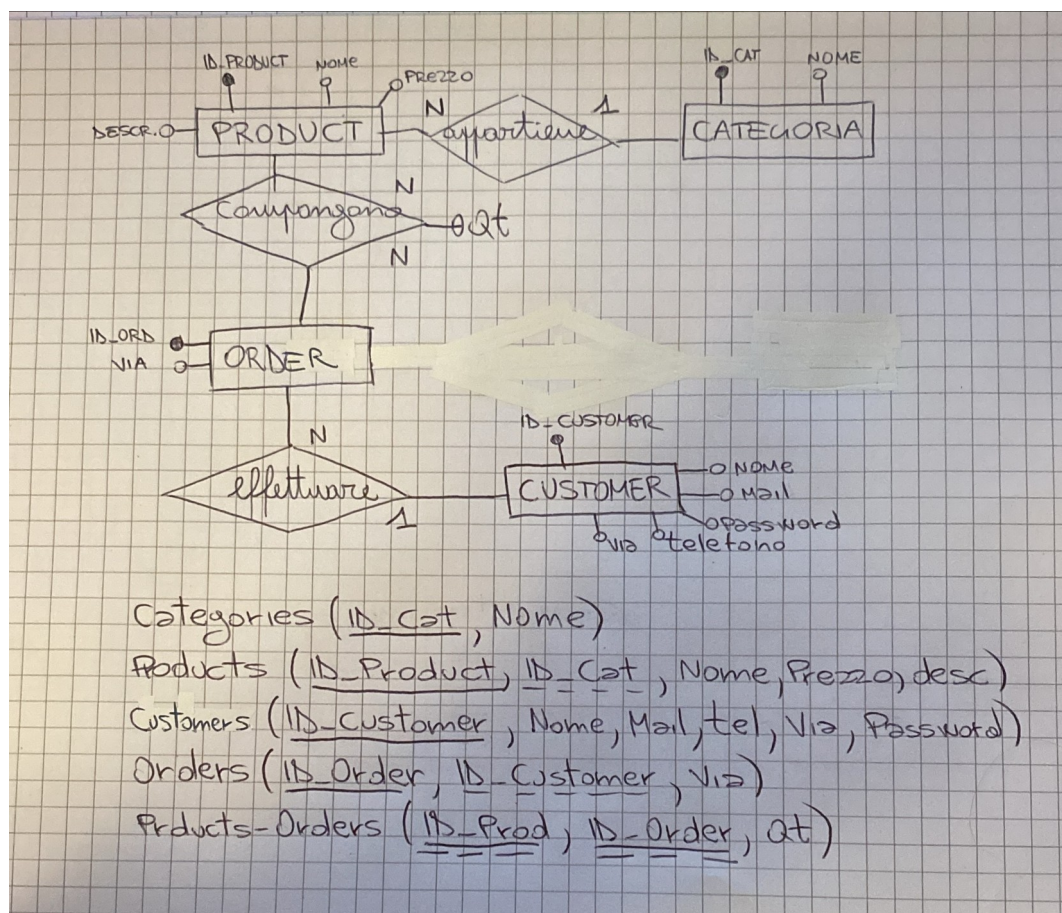 ID_PRODUCT NOME PREZZO
ID_CAT NOME
DESCR. PRODUCT N appartiene 1 CATEGORIA
N
Compongono Qt
N
ID_ORD
VIA
ORDER
N
effettuare
1
ID_CUSTOMER
CUSTOMER
NOME
Mail
password
telefono
via
Categories (ID_Cat, Nome)
Products (ID_Product, ID_Cat, Nome, Prezzo, desc)
Customers (ID_Customer, Nome, Mail, tel, Via, Password)
Orders (ID_Order, ID_Customer, Via)
Prducts-Orders (ID_Prod, ID_Order, Qt)